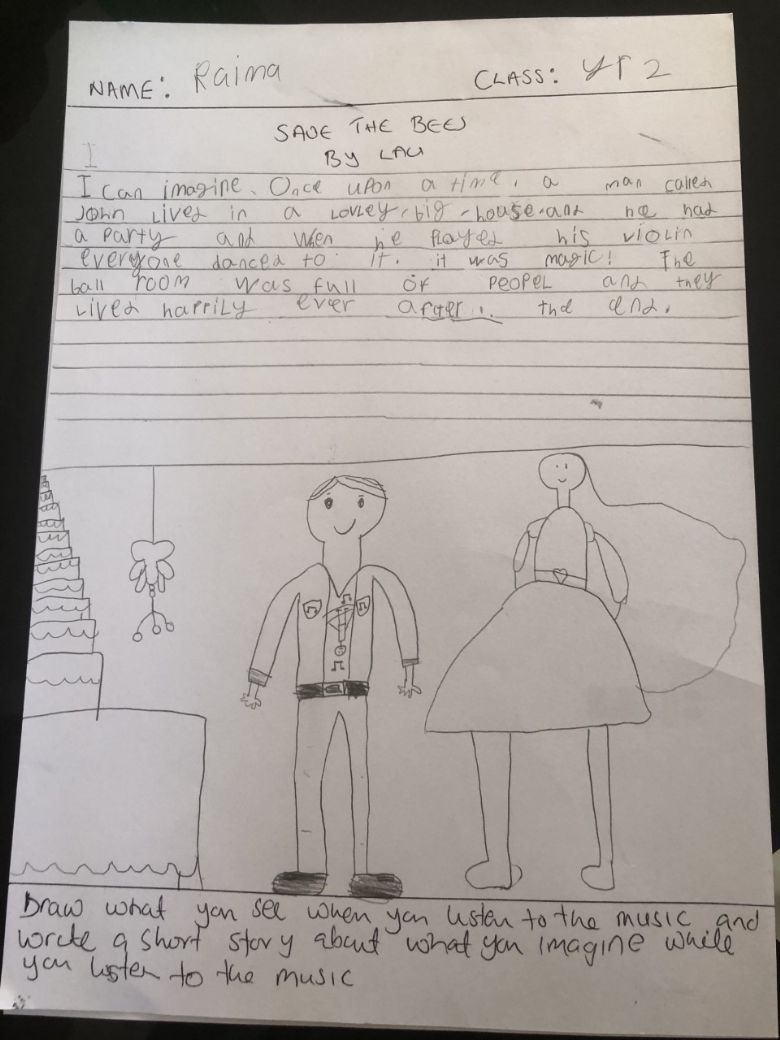 NAME: Raima CLASS: yr 2
SAVE THE BEES
BY LAU
I
I can imagine. Once upon a time, a man called
John lived in a lovley, big house and he had
a party and when he played his violin
everyone danced to it. it was magic! The
ball room was full of peopel and they
lived happily ever after... the end.
Draw what you see when you listen to the music and
wrote a short story about what you imagine while
you listen to the music